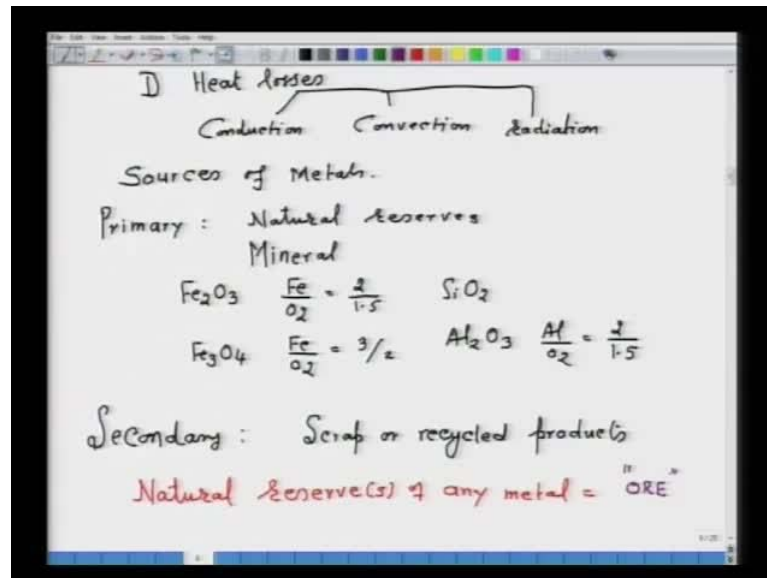 File Edit View Insert Actions Tools Help
D Heat losses
Conduction Convection Radiation
Sources of Metals.
Primary : Natural Reserves
Mineral
Fe2O3 Fe/O2 = 2/1.5 SiO2
Fe3O4 Fe/O2 = 3/2 Al2O3 Al/O2 = 2/1.5
Secondary : Scrap or recycled products
Natural Reserve(s) of any metal = "ORE"